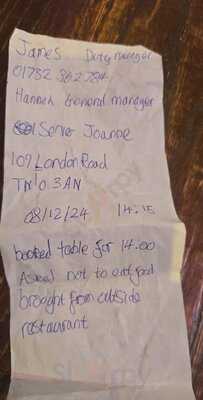 James Duty manager
01732 862784
Hannah General manager
Server Joanne
109 London Road
TN 03AN
08/12/24 14.15
booked table for 14.00
Asked not to eat food
brought from outside
restaurant